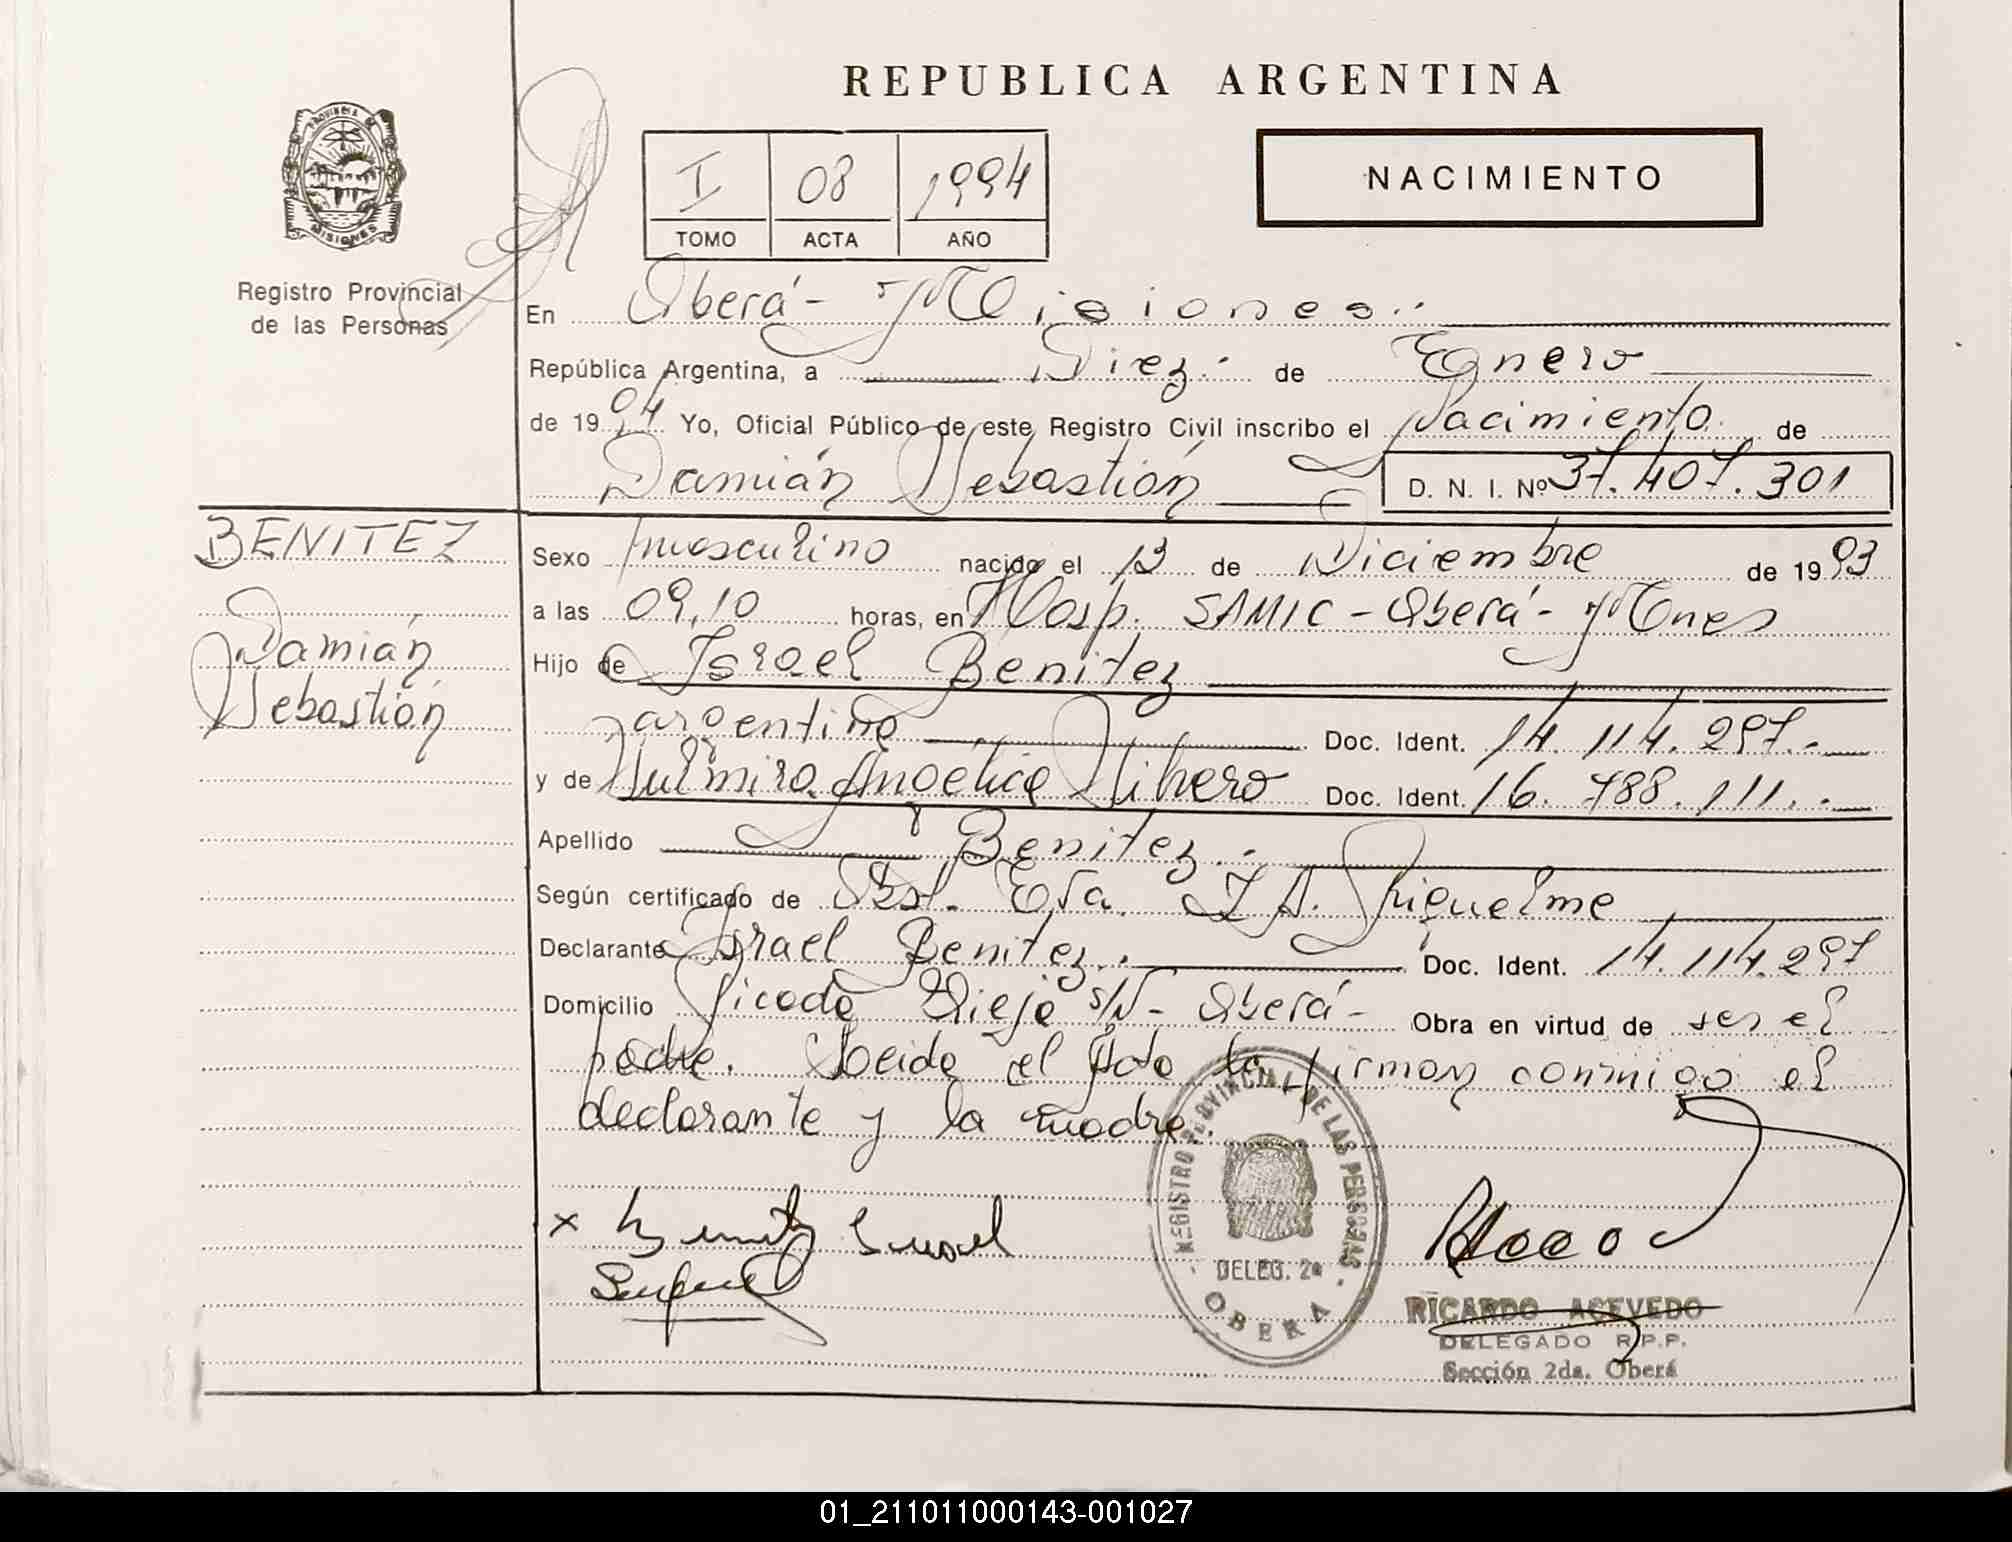 REPUBLICA ARGENTINA
PROVINCIA DE
MISIONES
Registro Provincial
de las Personas
I 08 1994
TOMO ACTA AÑO
NACIMIENTO
En Oberá - Misiones.
República Argentina, a Diez de Enero
de 1994 Yo, Oficial Público de este Registro Civil inscribo el Nacimiento de
Damián Sebastián D. N. I. Nº 37.407.301
BENITEZ
Damián
Sebastián
Sexo masculino nacido el 13 de Diciembre de 1993
a las 09,10 horas, en Hosp. SAMIC - Oberá - Mnes
Hijo de Israel Benitez
argentino Doc. Ident. 14.114.297.-
y de Angélica Doc. Ident. 16.788.111.-
Apellido Benitez.-
Según certificado de Obst. Eva I A. Riquelme
Declarante Israel Benitez.- Doc. Ident. 14.114.297
Domicilio Picada Vieja s/N - Oberá - Obra en virtud de ser el
padre. Leida el Acta la firman conmigo el
declarante y la madre.
x Benitez Israel
REGISTRO PROVINCIAL DE LAS PERSONAS
DELEG. 2a
OBERA
RICARDO ACEVEDO
DELEGADO R.P.P.
Sección 2da. Oberá
01_211011000143-001027